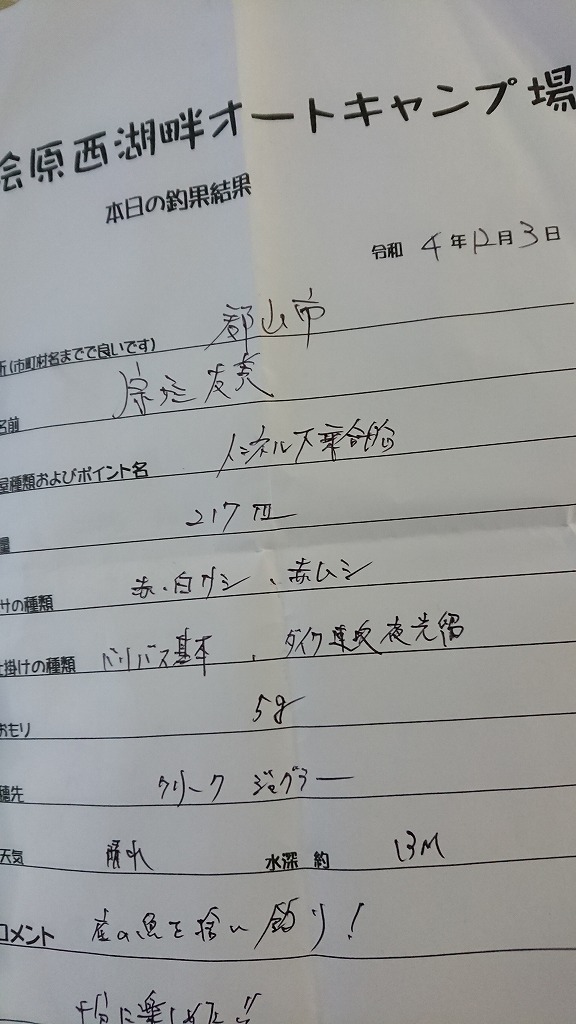 桧原西湖畔オートキャンプ場
本日の釣果結果
令和 4年12月3日
所(市町村名までで良いです) 郡山市
名前
屋種類およびポイント名 トンネル下乗合船
量 217匹
サの種類 赤、白サシ、赤ムシ
仕掛けの種類 バリバス基本、ダイワ 夜光留
おもり 5g
穂先 クリーク ジョグラー
天気 晴れ 水深 約 13M
コメント 底の魚を拾い釣り!
十分に楽しめた!!